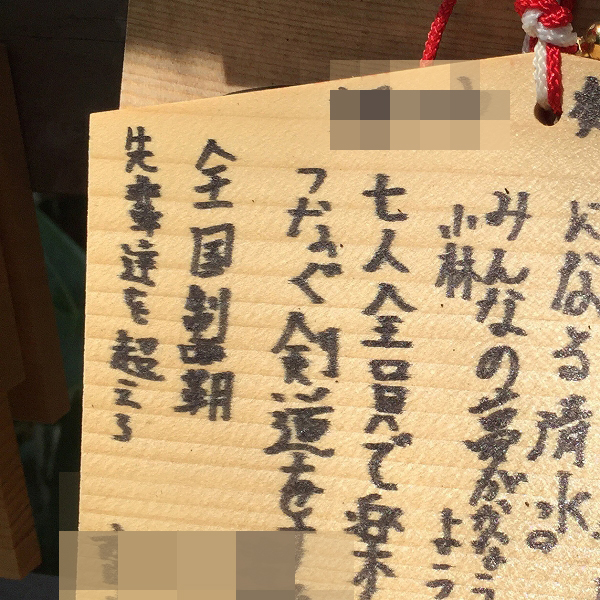 になる 清水
みんなの夢が
小林
よう
七人全員で楽
つなぐ剣道を
全国制覇
先輩達を超える